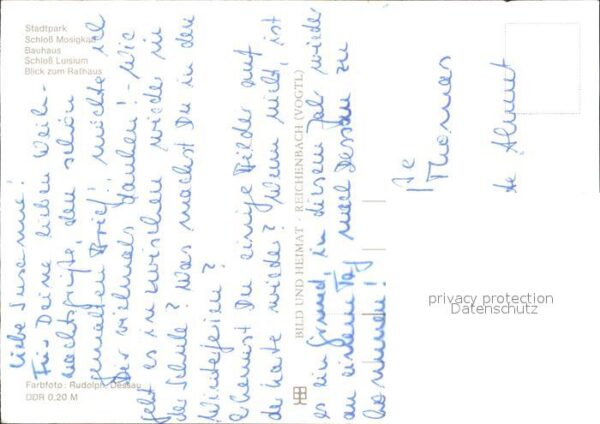 Stadtpark
Schloß Mosigkau
Bauhaus
Schloß Luisium
Blick zum Rathaus
Liebe Susanne!
Für Deine lieben Weih-
nachtsgrüße, den schön
gemalten Brief möchte ich
Dir vielmals danken! - Wie
geht es inzwischen wieder in
der Schule? Was machst Du in den
Winterferien?
Erkennst Du einige Bilder auf
der Karte wieder? Wenn nicht, ist
es ein Grund, in diesem Jahr wieder
an einem Tag nach Dessau zu
kommen!
Thomas
BILD UND HEIMAT · REICHENBACH (VOGTL)
Farbfoto: Rudolph, Dessau
DDR 0,20 M
privacy protection
Datenschutz